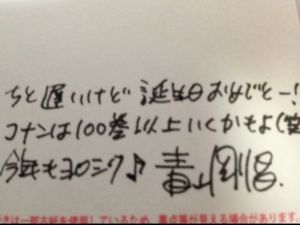 ちと遅いけど誕生日おめでとー!
コナンは100巻以上いくかもよ(笑
今年もヨロシク♪ 青山剛昌
きは一部古紙を使用しているため、黒点等が見える場合があります。